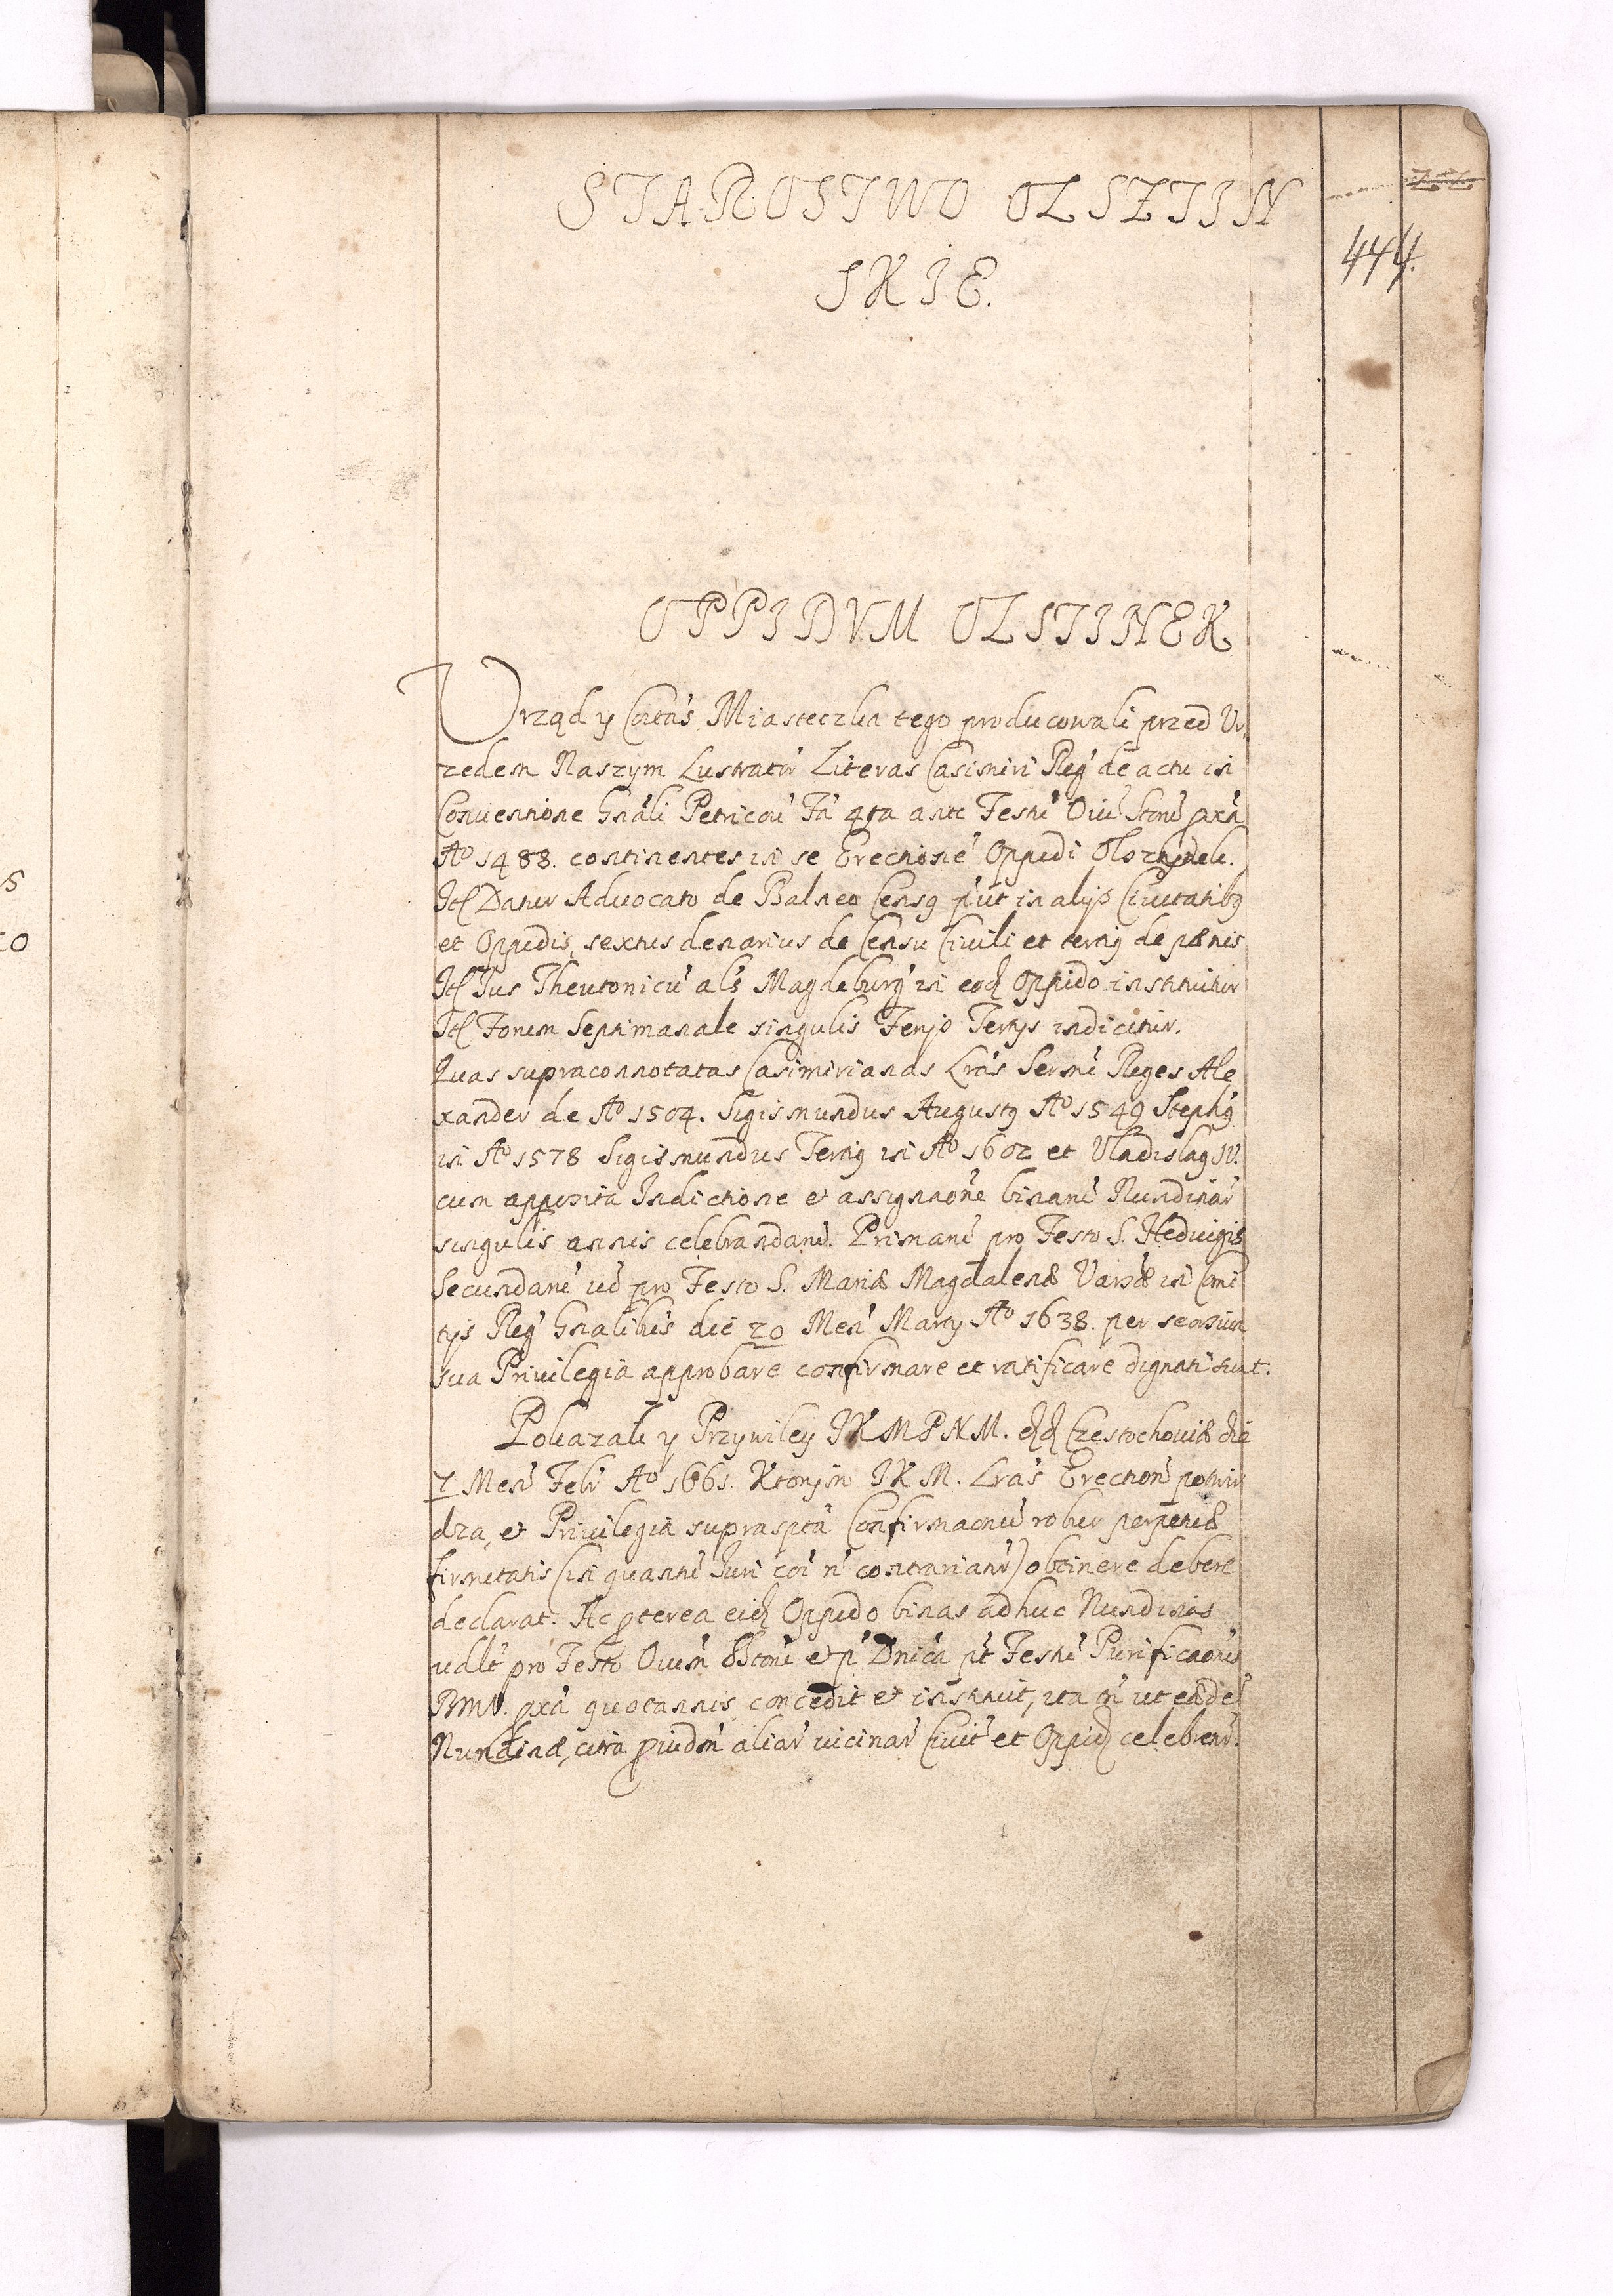 STAROSTWO OLSZTIN
SKIE.
444.
OPPIDVM OLSTINEK
Vrząd y Coitas Miasteczka tego producowali przed Vr,
zedem Naszym Lustrator Literas Casimiri Reg de actu in
Conventione Gnali Petricou Fa 4ta ante Festu Oiu Storu pxa
Ao 1488. continentes in se Erectione Oppidi
Itt Datur Advocato de Balneo Censq put in alijs Civitatibq
et Oppidis, sextus denarius de Censu Civili et tertiq de pænis
Itt Jus Theutonicu als Magdeburg in eod Oppido instituitur
Itt Forum Septimanale singulis Ferijs Tertijs indicitur.
Quas supraconnotatas Casimirianas Lras Sermi Reges Ale,
xander de Ao 1504. Sigismundus Augustq Ao 1549 Stephq
in Ao 1578 Sigismundus Tertiq in Ao 1602 et Vladislaq IV.
cum apposita Indictione et assignaone binaru Nundinar
singulis annis celebrandaru. Primaru pro Festo S. Hedvigis
Secundaru vo pro Festo S. Mariæ Magdalenæ Varsæ in Comi
tijs Reg Gnalibus die 20 Men Marty Ao 1638. per seorsiva
sua Privilegia approbare confirmare et ratificare dignati sunt.
Pokazali y Przywiley JKMPNM. dd Czestochoviæ die
7 Men Febr Ao 1661. Ktorym JKM. Lras Erection potwir
dza, et Privilegia supraspta Confirmaonu robur perpetuæ
firmitatis (in quantu Juri coi n contrariant) obtinere debere
declarat. Ac pterea eid Oppido binas adhuc Nundinas
vdlt pro Festo Oium SStoru et p Dnica pt Festu Purificaonis
BMV. pxa quotannis concedit et instituit, ita tn ut eadē
Nundinæ, citra piudm aliar vicinar Civit et Oppid celebrent.